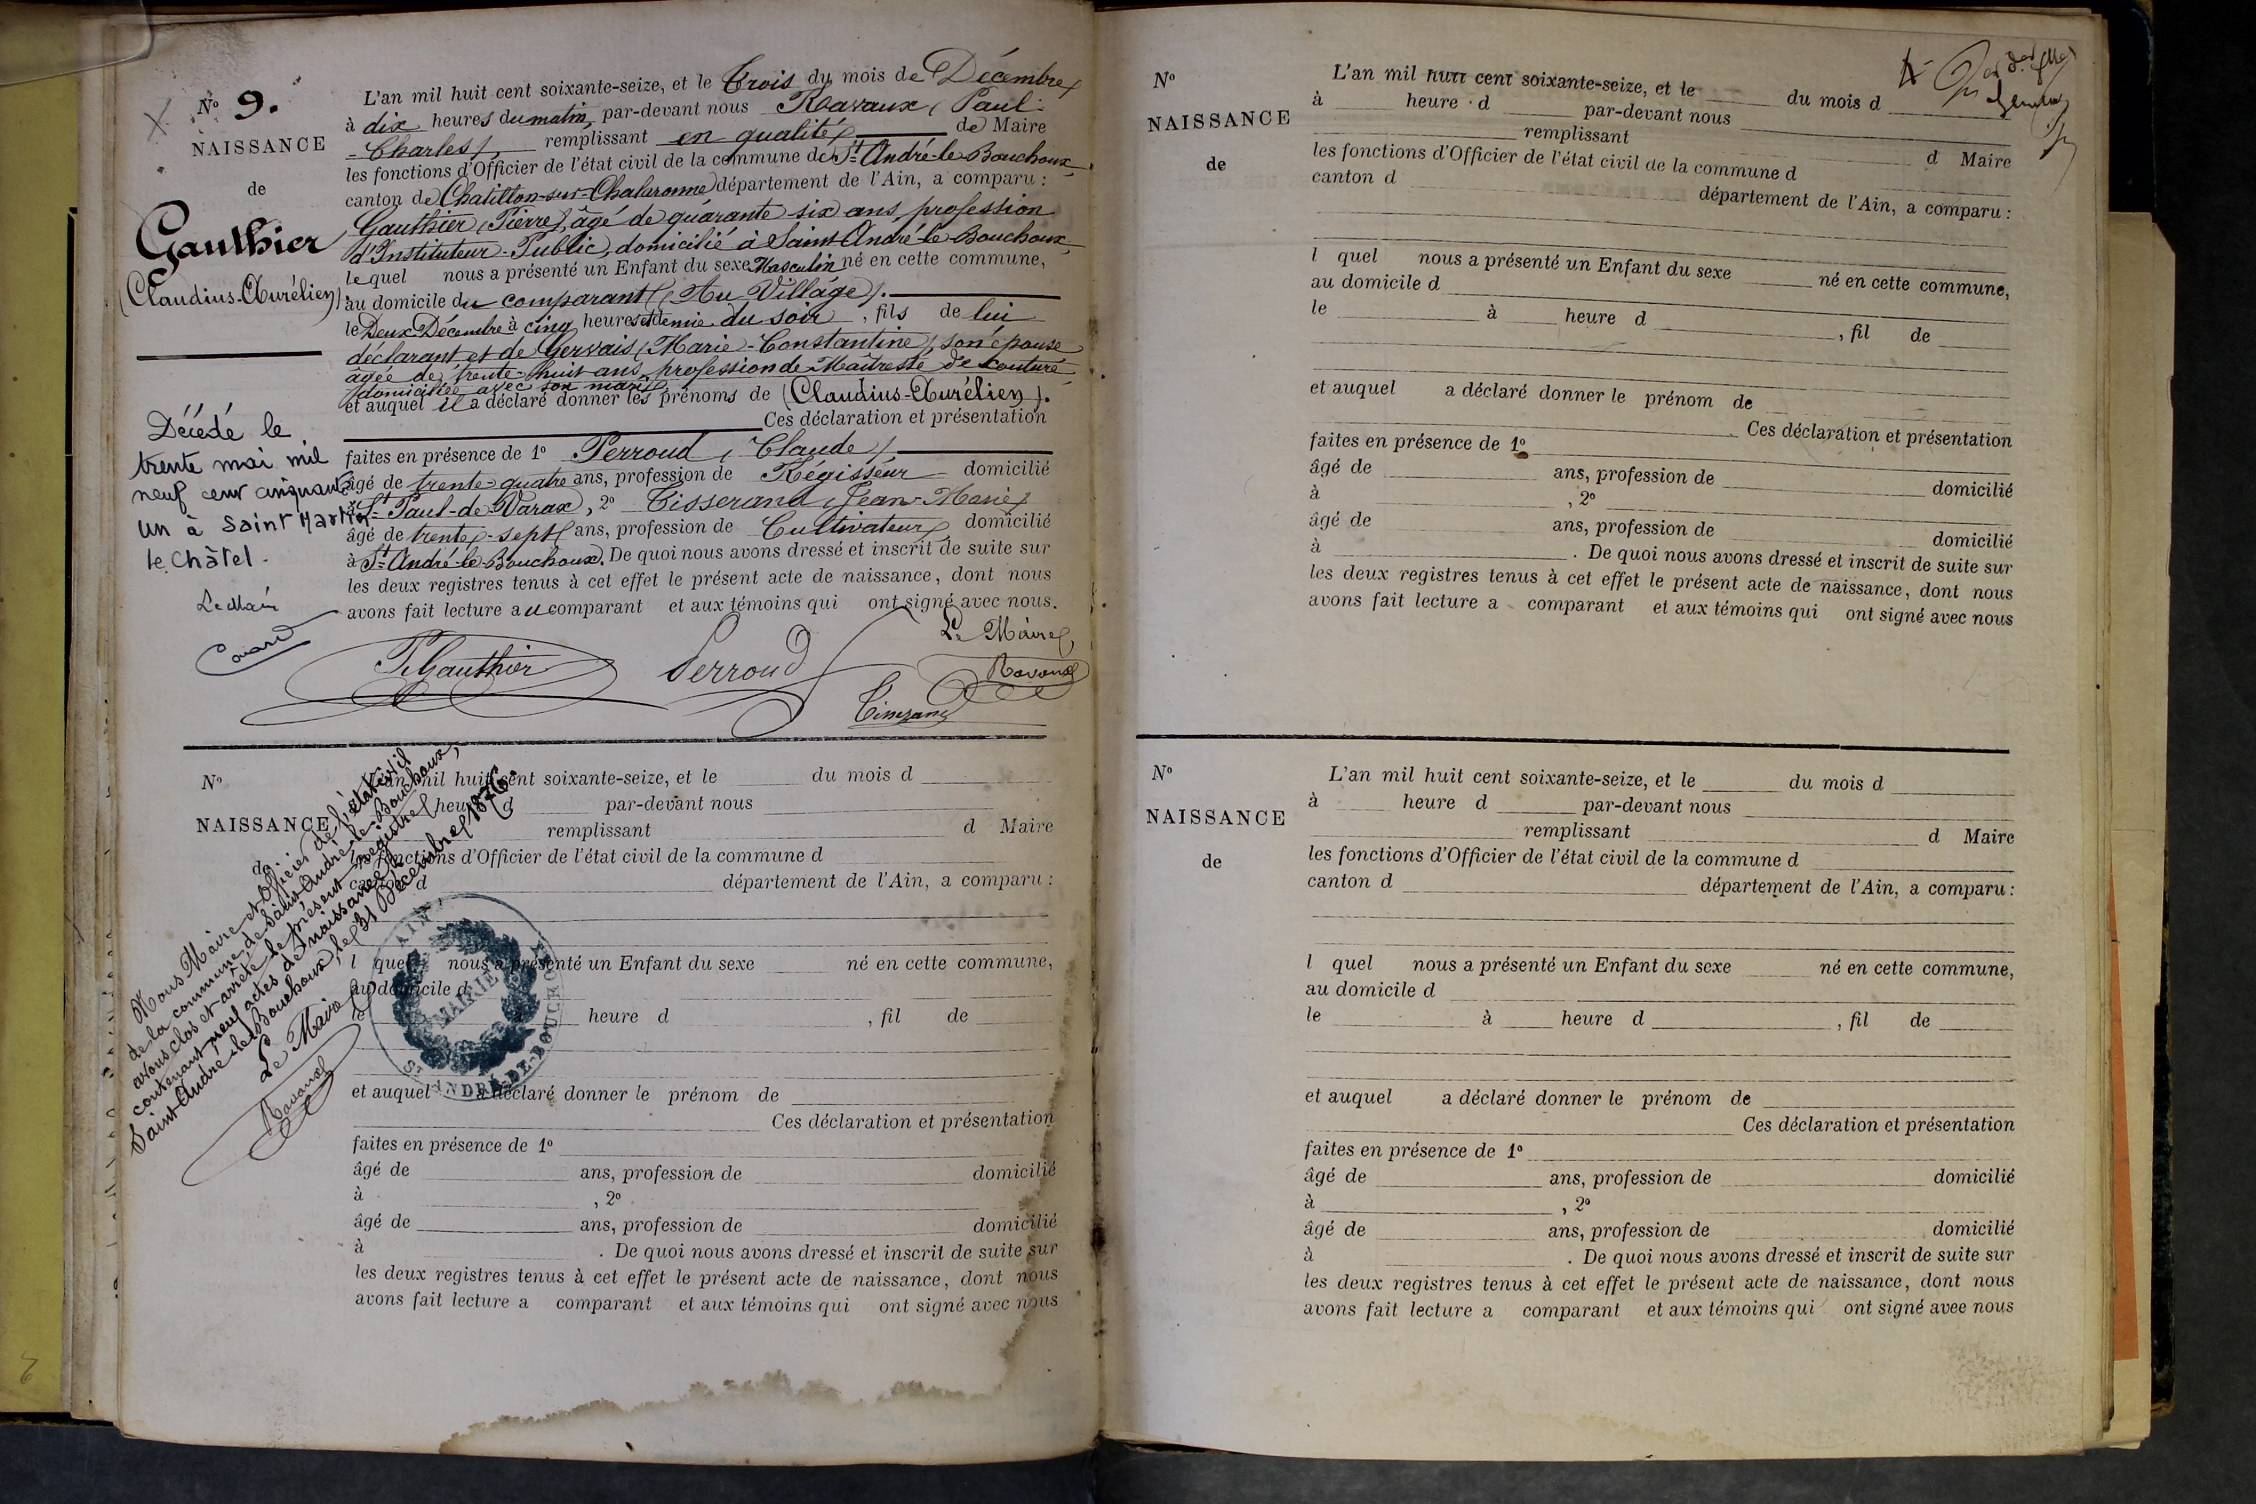 N° 9.
NAISSANCE
de
Gauthier
(Claudius-Aurélien).
L'an mil huit cent soixante-seize, et le Trois du mois de Décembre
à dix heures du matin, par-devant nous Ravaux (Paul-
-Charles), remplissant en qualité de Maire
les fonctions d'Officier de l'état civil de la commune de St-André-le-Bouchoux,
canton de Chatillon-sur-Chalaronne département de l'Ain, a comparu :
Gauthier (Pierre) âgé de quarante six ans, profession
d'Instituteur-Public, domicilié à Saint-André-le-Bouchoux,
lequel nous a présenté un Enfant du sexe Masculin né en cette commune,
au domicile du comparant (Au Village).
le Deux Décembre à cinq heures et demie du soir, fils de lui
déclarant et de Gervais (Marie-Constantine), son épouse
âgée de trente-huit ans, profession de Maîtresse de couture
domiciliée avec son mari
et auquel il a déclaré donner les prénoms de (Claudius-Aurélien).
Ces déclaration et présentation
faites en présence de 1° Perroud (Claude)
âgé de trente-quatre ans, profession de Régisseur domicilié
à St-Paul-de-Varax, 2° Tisserand (Jean-Marie)
âgé de trente-sept ans, profession de Cultivateur domicilié
à St-André-le-Bouchoux. De quoi nous avons dressé et inscrit de suite sur
les deux registres tenus à cet effet le présent acte de naissance, dont nous
avons fait lecture au comparant et aux témoins qui ont signé avec nous.
Décédé le
trente mai mil
neuf cent cinquante
un à Saint Martin
le Châtel.
Le Maire
P. Gauthier Perroud Le Maire,
Ravaux
Tisserand
N°
NAISSANCE
de
L'an mil huit cent soixante-seize, et le du mois d
à heure d par-devant nous
remplissant d Maire
les fonctions d'Officier de l'état civil de la commune d
canton d département de l'Ain, a comparu :
l quel nous a présenté un Enfant du sexe né en cette commune,
au domicile d
le à heure d , fil de
et auquel a déclaré donner le prénom de
Ces déclaration et présentation
faites en présence de 1°
âgé de ans, profession de domicilié
à , 2°
âgé de ans, profession de domicilié
à . De quoi nous avons dressé et inscrit de suite sur
les deux registres tenus à cet effet le présent acte de naissance, dont nous
avons fait lecture a comparant et aux témoins qui ont signé avec nous
Nous Maire et Officier de l'état civil
de la commune de Saint-André-le-Bouchoux,
avons clos et arrêté le présent registre
contenant neuf actes de naissance,
Saint-André-le-Bouchoux, le 31 Décembre 1876.
Le Maire
Ravaux
AIN
MAIRIE
ST ANDRÉ-LE-BOUCHOUX
N°
NAISSANCE
de
L'an mil huit cent soixante-seize, et le du mois d
à heure d par-devant nous
remplissant d Maire
les fonctions d'Officier de l'état civil de la commune d
canton d département de l'Ain, a comparu :
l quel nous a présenté un Enfant du sexe né en cette commune,
au domicile d
le à heure d , fil de
et auquel a déclaré donner le prénom de
Ces déclaration et présentation
faites en présence de 1°
âgé de ans, profession de domicilié
à , 2°
âgé de ans, profession de domicilié
à . De quoi nous avons dressé et inscrit de suite sur
les deux registres tenus à cet effet le présent acte de naissance, dont nous
avons fait lecture a comparant et aux témoins qui ont signé avec nous
N°
NAISSANCE
de
L'an mil huit cent soixante-seize, et le du mois d
à heure d par-devant nous
remplissant d Maire
les fonctions d'Officier de l'état civil de la commune d
canton d département de l'Ain, a comparu :
l quel nous a présenté un Enfant du sexe né en cette commune,
au domicile d
le à heure d , fil de
et auquel a déclaré donner le prénom de
Ces déclaration et présentation
faites en présence de 1°
âgé de ans, profession de domicilié
à , 2°
âgé de ans, profession de domicilié
à . De quoi nous avons dressé et inscrit de suite sur
les deux registres tenus à cet effet le présent acte de naissance, dont nous
avons fait lecture a comparant et aux témoins qui ont signé avec nous